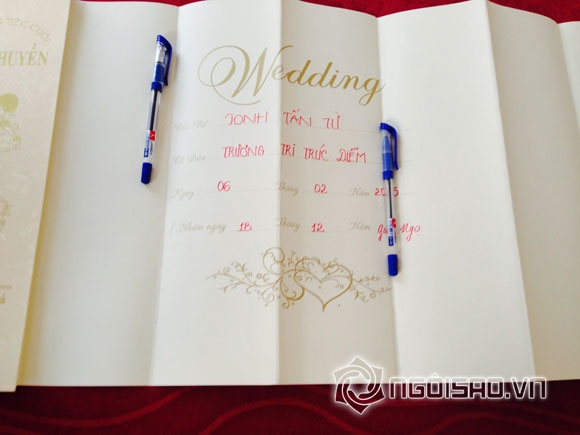 HUYỀN
Wedding
Chú Rể: JONH TẤN TỪ
Cô Dâu TRƯƠNG TRI TRÚC DIỄM
Ngày: 06 Tháng 02 Năm
( Nhằm ngày 18 Tháng 12 Năm Ngọ
NGÔISAO.VN